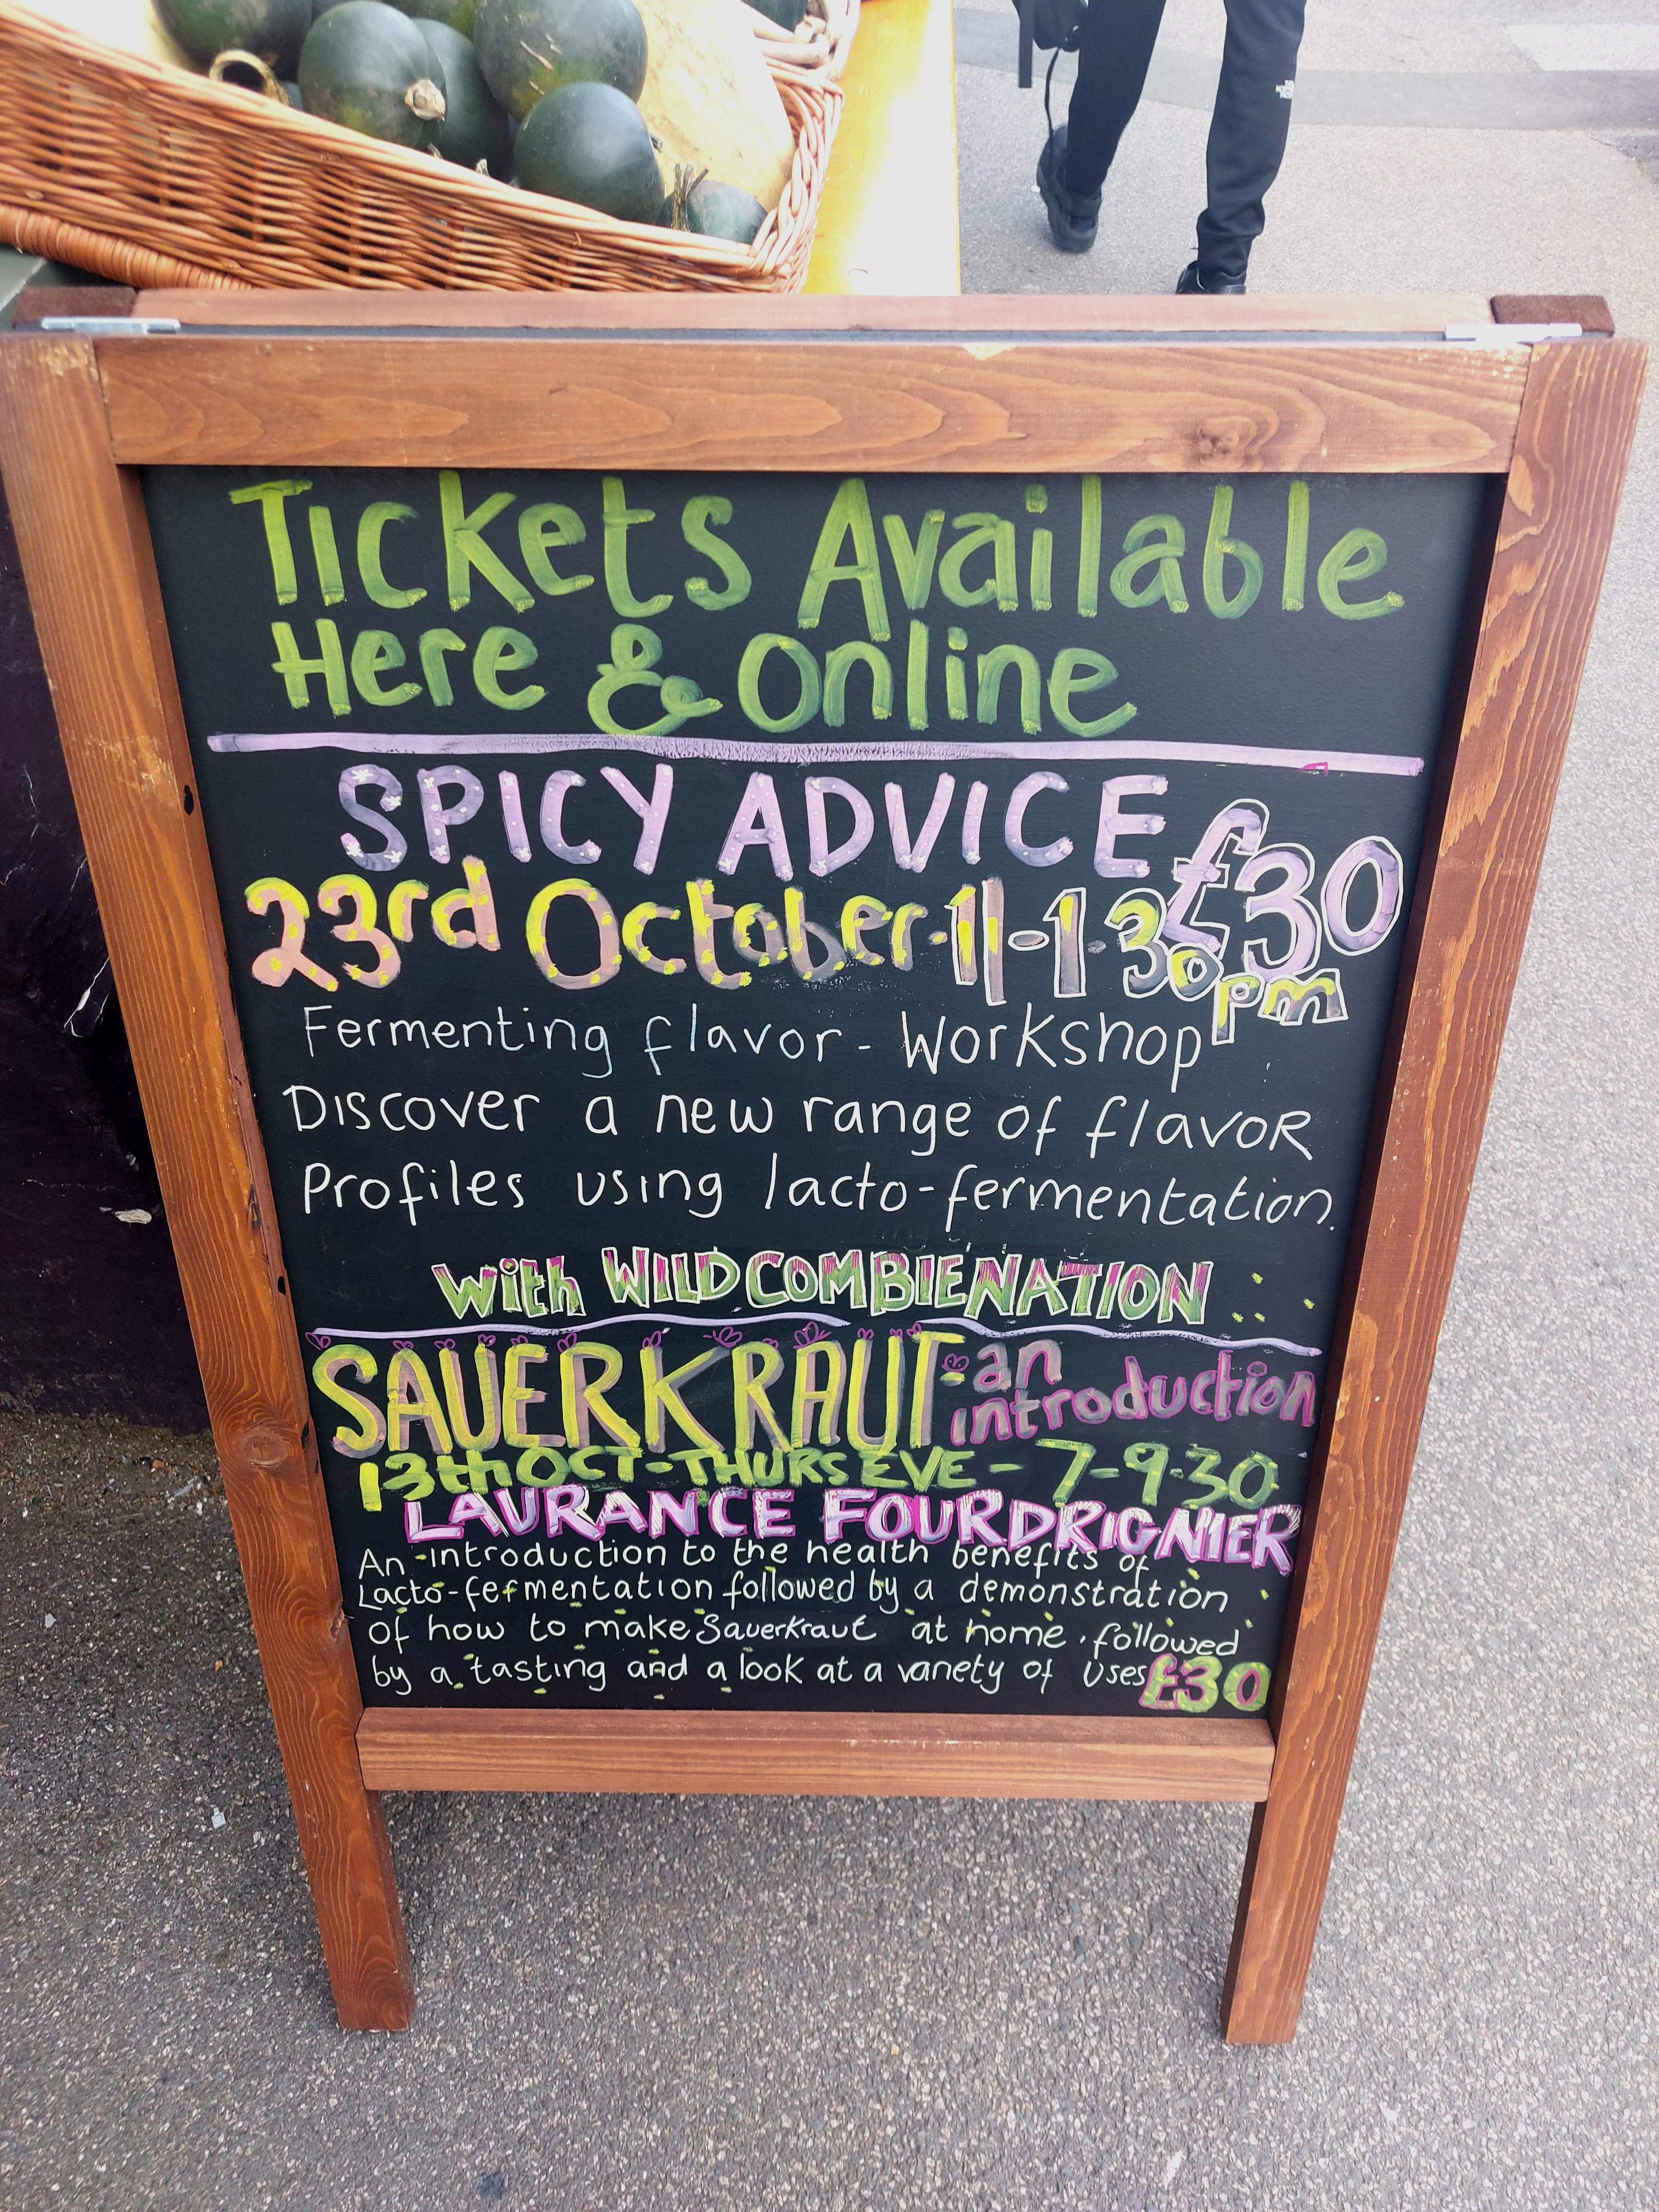 THE NORTH FACE
Tickets Available
Here & Online
SPICY ADVICE £30
23rd October · 11-1·30pm
Fermenting flavor - Workshop
Discover a new range of flavor
Profiles using lacto-fermentation.
with WILD COMBIENATION
SAUERKRAUT - an introduction
13th OCT - THURS EVE - 7-9·30
LAURANCE FOURDRIGNIER
An introduction to the health benefits of
Lacto-fermentation followed by a demonstration
of how to make Sauerkraut at home. followed
by a tasting and a look at a variety of uses £30